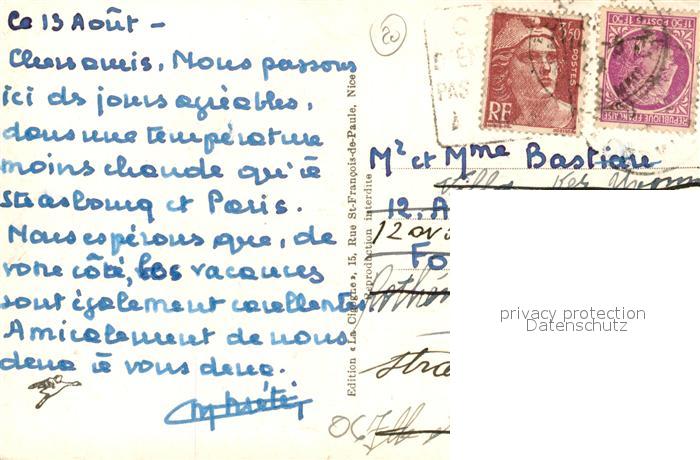 Ce 13 Août -
Chers amis, Nous passons
ici des jours agréables,
dans une température
moins chaude qu'à
Strasbourg et Paris.
Nous espérons que, de
votre côté, les vacances
sont également excellentes
Amicalement de nous
deux à vous deux.
20
3,50
POSTES
RF
1F50 POSTES 1F50
REPUBLIQUE FRANÇAISE
Edition « La Cigogne », 15, Rue St-François-de-Paule, Nice
Reproduction interdite
Mr et Mme Bastian
Villa Ker
12, A
12 av
Fo
Stra
privacy protection
Datenschutz